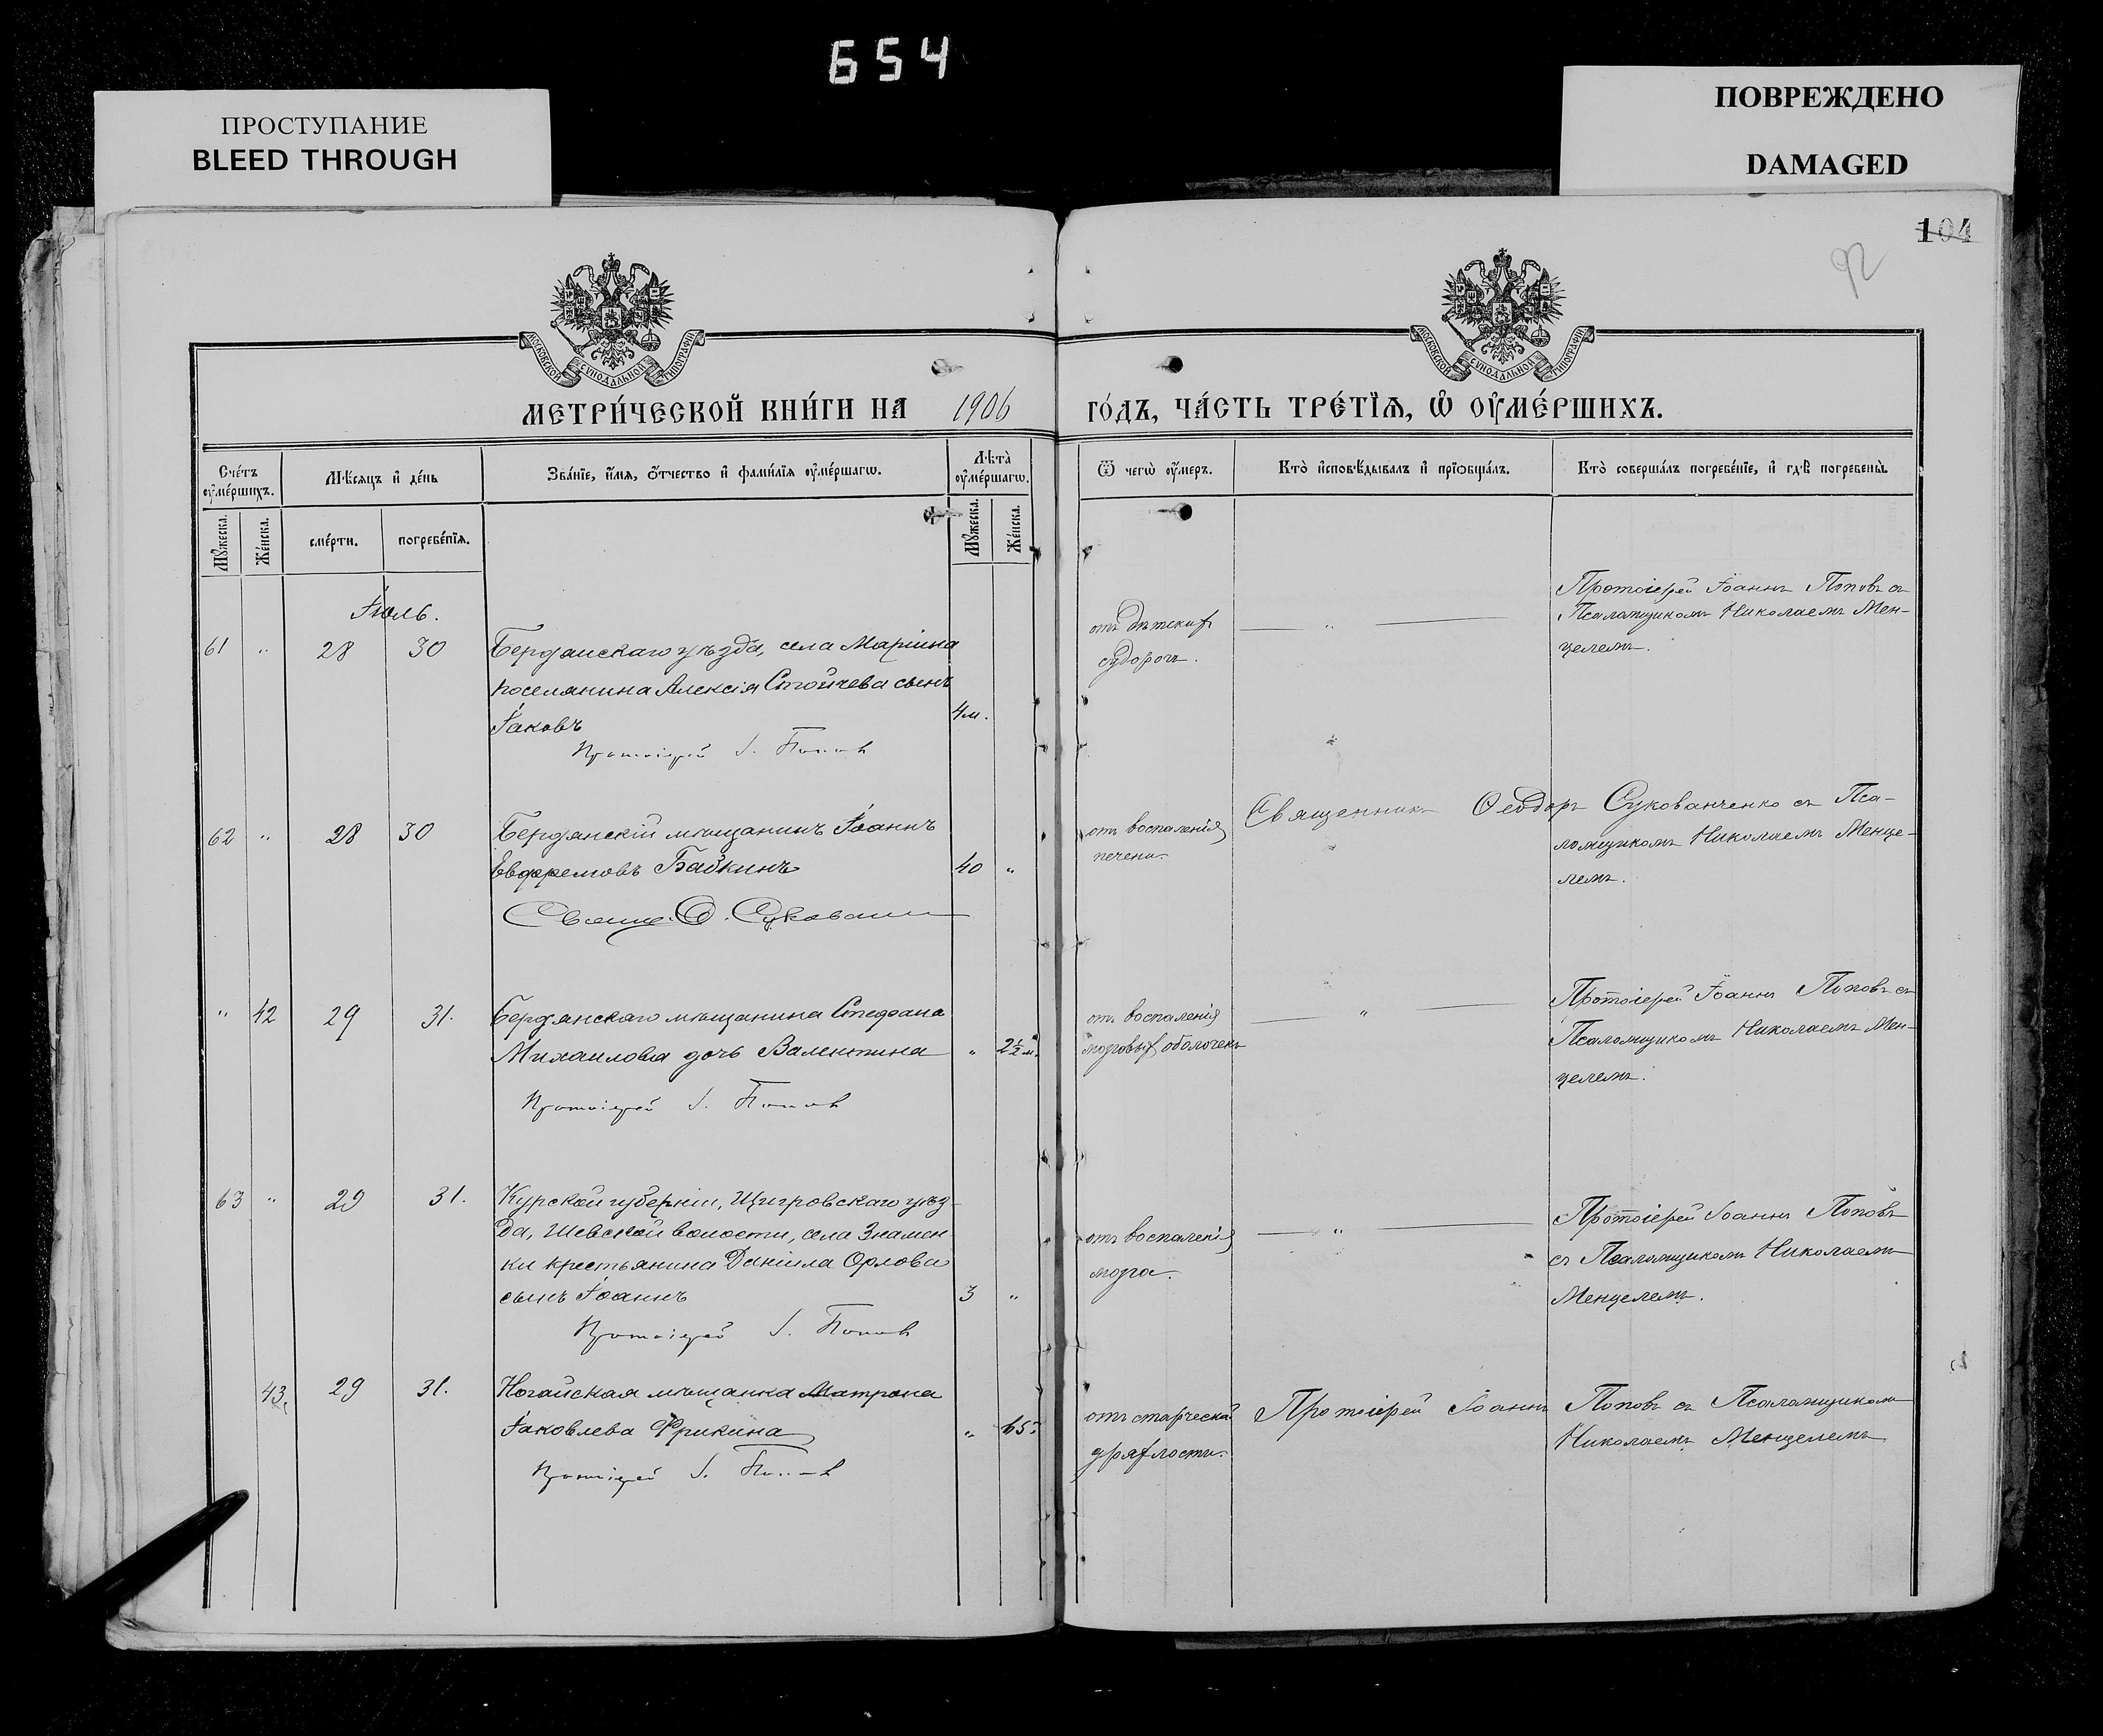 654
ПРОСТУПАНИЕ
BLEED THROUGH
ПОВРЕЖДЕНО
DAMAGED
104
92
МОСКОВСКОЙ СѴНОДАЛЬНОЙ ТИПОГРАФІИ
МОСКОВСКОЙ СѴНОДАЛЬНОЙ ТИПОГРАФІИ
МЕТРИ́ЧЕСКОЙ КНИ́ГИ НА 1906 ГО́ДЪ, ЧА́СТЬ ТРЕ́ТІѦ, Ѽ ОУ҆МЕ́РШИХЪ.
Сче́тъ оу҆ме́ршихъ.
Мѣ́сяцъ и҆ де́нь
Зва́нїе, и҆́мя, ѻ҆́тчество и҆ фами́лїя оу҆ме́ршагѡ.
Лѣ́та̀ оу҆ме́ршагѡ.
Ѿ чегѡ̀ оу҆́меръ.
Кто̀ и҆сповѣ́дывалъ и҆ прїѡбща́лъ.
Кто̀ соверша́лъ погребе́нїе, и҆ гдѣ̀ погребены̀.
Мꙋ́жеска.
Же́нска.
сме́рти.
погребе́нїѧ.
Мꙋ́жеска.
Же́нска.
Іюль.
61 " 28 30
Бердянскаго уѣзда, села Маріина
поселянина Алексія Стойчева сынъ
Іаковъ
4 м.
Протоіерей І. Попов
отъ дѣтских
судорогъ.
"
Протоіерей Іоаннъ Поповъ съ
Псаломщикомъ Николаемъ Мен-
целемъ.
62 " 28 30
Бердянскій мѣщанинъ Іоаннъ
Евфремовъ Бабкинъ
40 "
Свящ. Ѳ. Сукован
отъ воспаленія
печени.
Священникъ Ѳеодоръ Сукованченко съ Пса-
ломщикомъ Николаемъ Менце-
лемъ.
" 42 29 31.
Бердянскаго мѣщанина Стефана
Михаилова дочь Валентина
" 2½ м.
Протоіерей І. Попов
отъ воспаленія
мозговых оболочекъ
"
Протоіерей Іоаннъ Поповъ съ
Псаломщикомъ Николаемъ Мен-
целемъ.
63 " 29 31.
Курской губерніи, Щигровскаго уѣз-
да, Шевской волости, села Знамен
ки крестьянина Даніила Орлова
сынъ Іоаннъ
3 "
Протоіерей І. Попов
отъ воспаленія
мозга.
"
Протоіерей Іоаннъ Поповъ
съ Псаломщикомъ Николаемъ
Менцелемъ.
43 29 31.
Ногайская мѣщанка Матрона
Іаковлева Фрикина
" 65
Протоіерей І. Попов
отъ старческой
дряхлости.
Протоіерей Іоаннъ Поповъ съ Псаломщикомъ
Николаемъ Менцелемъ